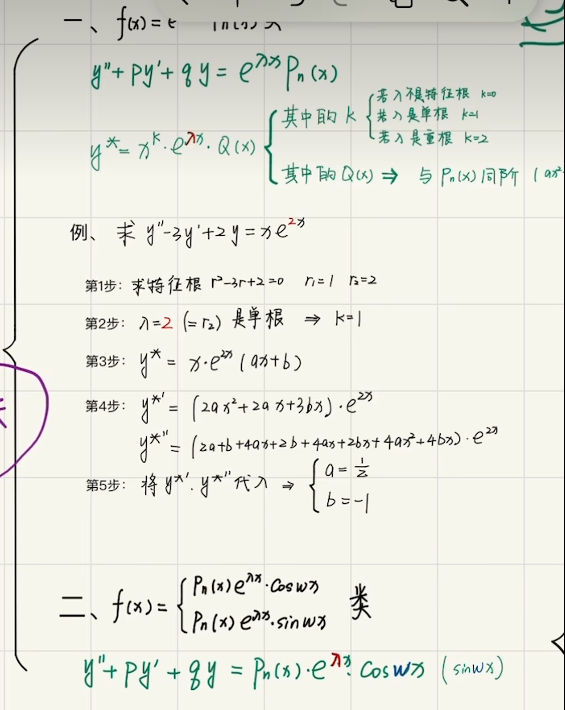 一、f(x)=e
y"+py'+qy=e^{λx}P_n(x)
y*=x^k·e^{λx}·Q(x)
其中的k
若λ不是特征根 k=0
若λ是单根 k=1
若λ是重根 k=2
其中的Q(x) ⇒ 与P_n(x)同阶 (ax²
例、求 y"-3y'+2y=xe^{2x}
第1步: 求特征根 r²-3r+2=0 r₁=1 r₂=2
第2步: λ=2 (=r₂) 是单根 ⇒ k=1
第3步: y*=x·e^{2x}(ax+b)
第4步: y*'=(2ax²+2ax+3bx)·e^{2x}
y*"=(2a+b+4ax+2b+4ax+2bx+4ax²+4bx)·e^{2x}
第5步: 将y*'.y*"代入 ⇒ { a=1/2
b=-1
二、f(x)= { P_n(x)e^{λx}·coswx 类
P_n(x)e^{λx}·sinwx
y"+py'+qy=P_n(x)·e^{λx}·coswx (sinwx)